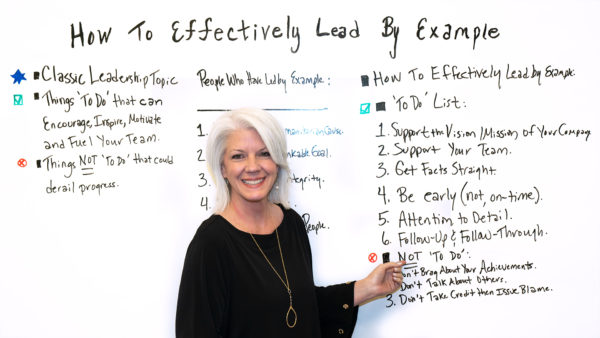 How To Effectively Lead By Example
Classic Leadership Topic
Things 'To Do' that can
Encourage, Inspire, Motivate
and Fuel Your Team.
Things NOT 'To Do' that could
derail progress.
People Who Have Led by Example:
1.
2.
3.
4.
Goal.
People.
How To Effectively Lead by Example.
'To Do' List:
1. Support the Vision/Mission of Your Company
2. Support Your Team.
3. Get Facts Straight.
4. Be early (not, on-time).
5. Attention to Detail.
6. Follow-Up & Follow-Through.
NOT 'To Do':
Brag About Your Achievements.
Don't Talk About Others.
3. Don't Take Credit then Issue Blame.